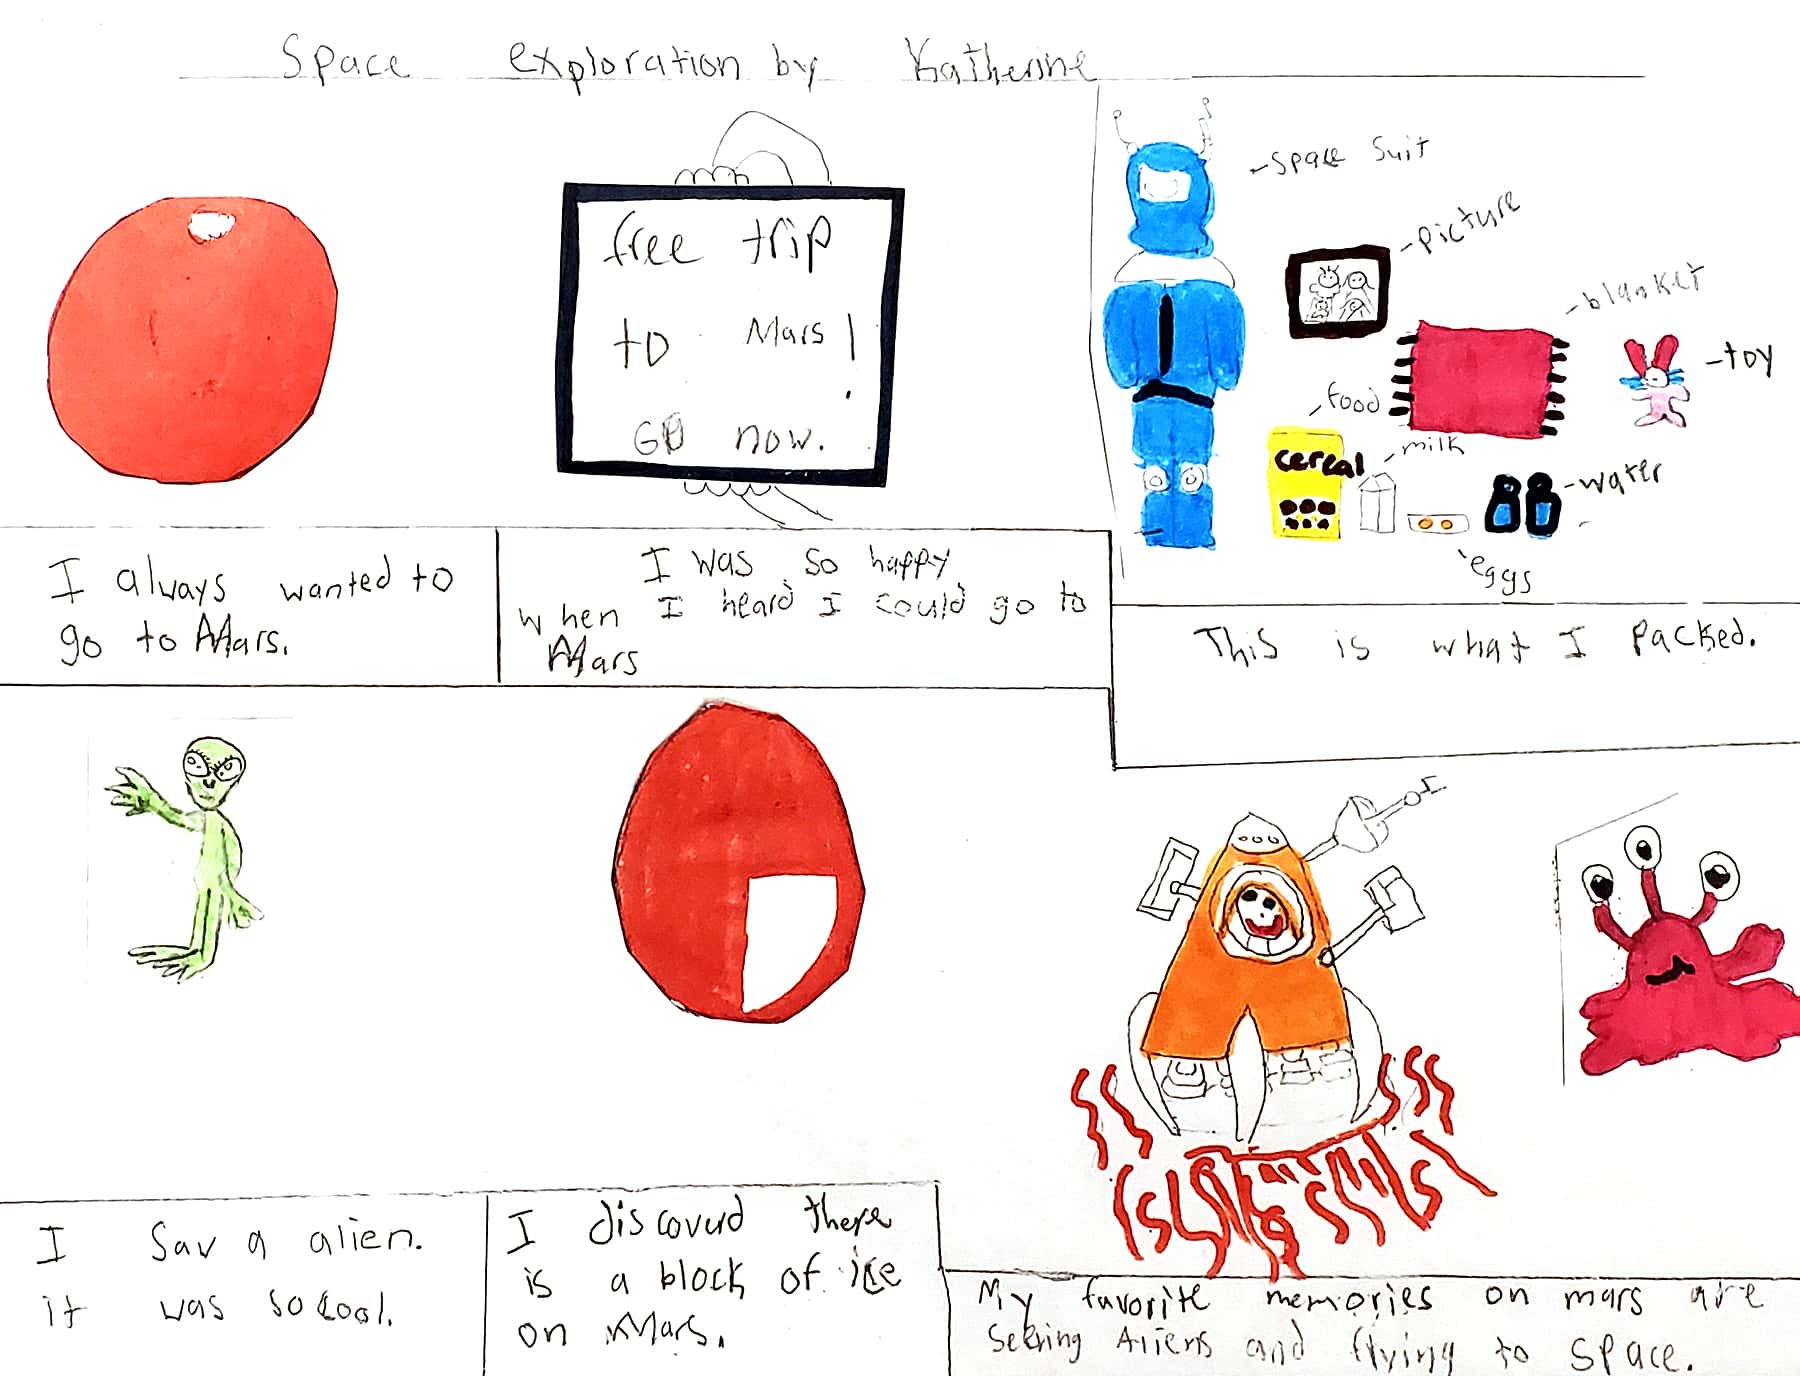 Space exploration by Katherine
free trip
to Mars!
GO now.
-Space Suit
-picture
-blanket
-toy
-food
cereal
-milk
-water
eggs
I always wanted to
go to Mars.
I was so happy
when I heard I could go to
Mars
This is what I packed.
I Sav a alien.
it was so cool.
I discovurd there
is a block of ice
on Mars.
My favorite memories on mars are
Seeing Aliens and flying to space.